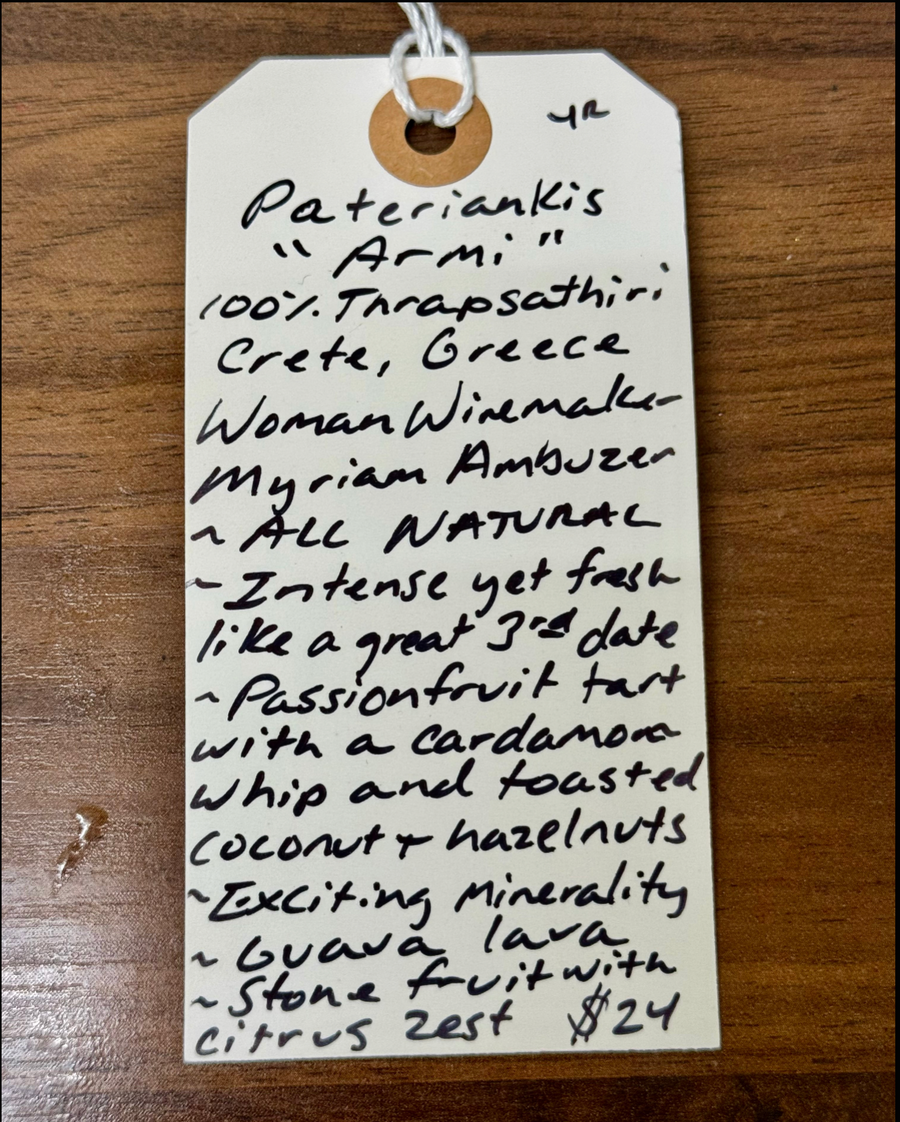 4R
Pateriankis
"Armi"
100% Thrapsathiri
Crete, Greece
Woman Winemaker
Myriam Ambuzer
~ ALL NATURAL
~ Intense yet fresh
like a great 3rd date
~ Passionfruit tart
with a cardamom
whip and toasted
coconut + hazelnuts
~ Exciting Minerality
~ Guava lava
~ Stone fruit with
citrus zest $24